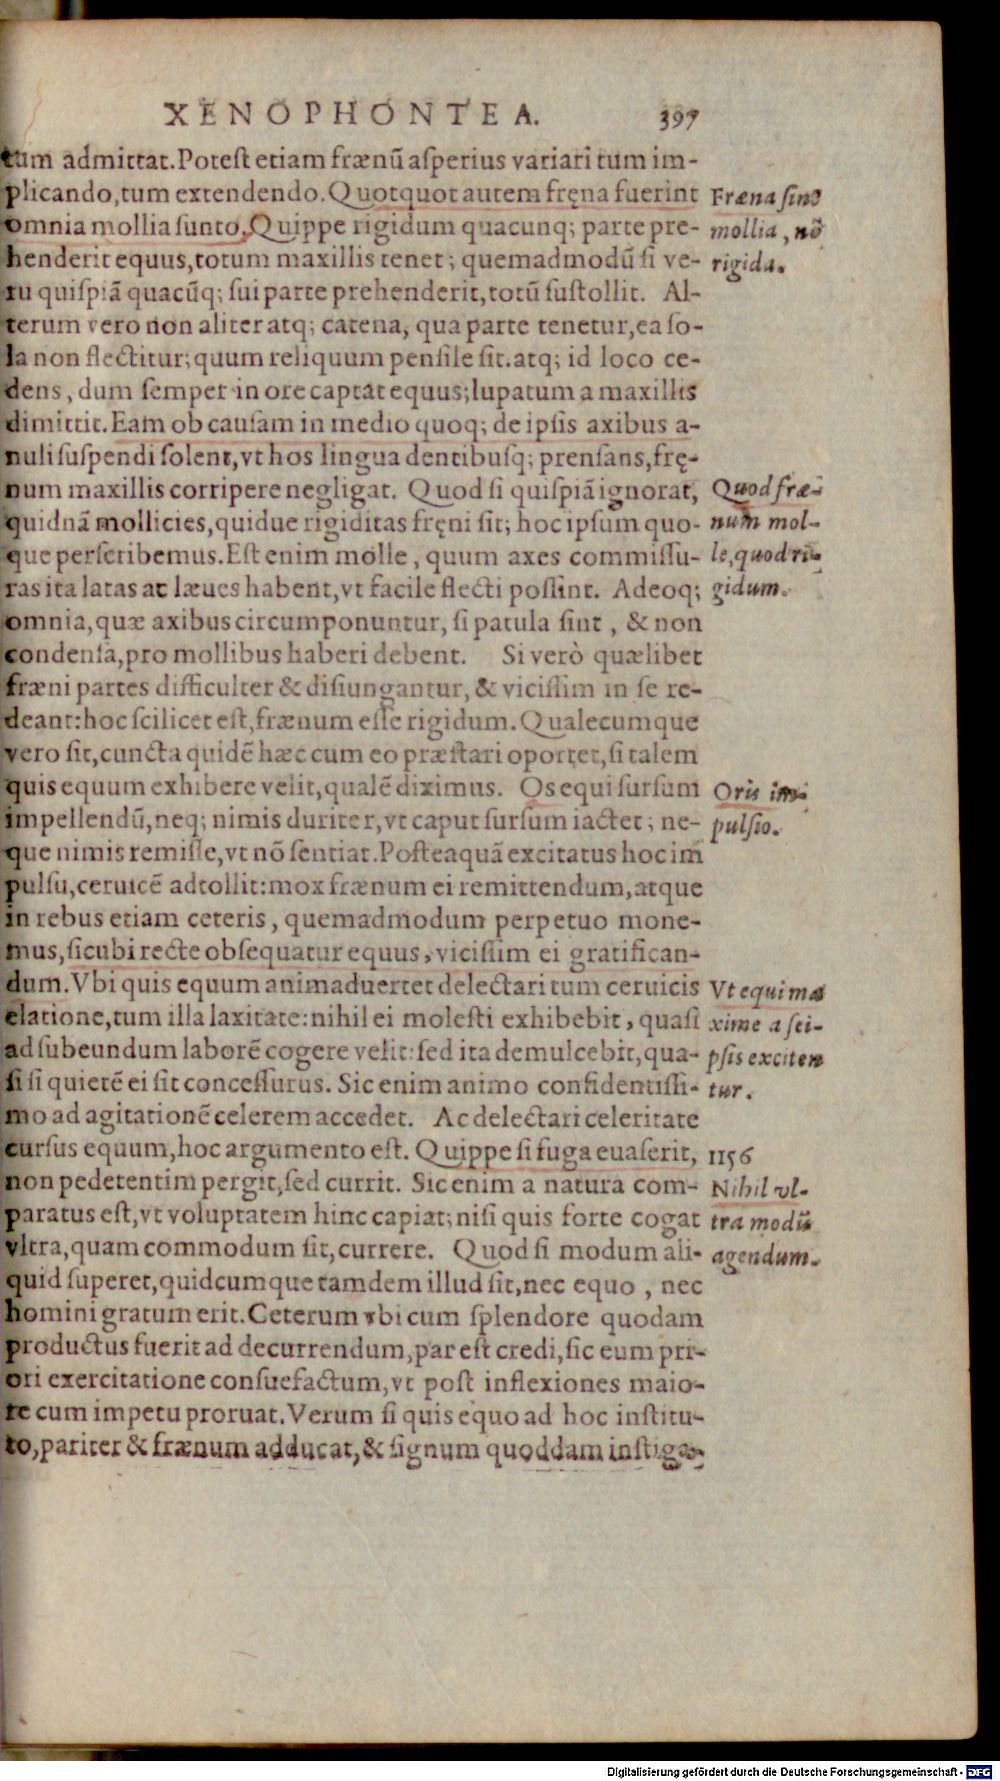 XENOPHONTEA. 397
tum admittat. Potest etiam frænũ asperius variari tum im-
plicando, tum extendendo. Quotquot autem fręna fuerint
omnia mollia sunto. Quippe rigidum quacunq; parte pre-
henderit equus, totum maxillis tenet; quemadmodũ si ve-
ru quispiã quacũq; sui parte prehenderit, totũ sustollit. Al-
terum vero non aliter atq; catena, qua parte tenetur, ea so-
la non flectitur; quum reliquum pensile sit. atq; id loco ce-
dens, dum semper in ore captat equus; lupatum a maxillis
dimittit. Eam ob causam in medio quoq; de ipsis axibus a-
nuli suspendi solent, vt hos lingua dentibusq; prensans, frę-
num maxillis corripere negligat. Quod si quispiã ignorat,
quidnã mollicies, quidue rigiditas fręni sit; hoc ipsum quo-
que perscribemus. Est enim molle, quum axes commissu-
ras ita latas ac læues habent, vt facile flecti possint. Adeoq;
omnia, quæ axibus circumponuntur, si patula sint, & non
condensa, pro mollibus haberi debent. Si verò quælibet
fræni partes difficulter & disiungantur, & vicissim in se re-
deant: hoc scilicet est, frænum esse rigidum. Qualecumque
vero sit, cuncta quidẽ hæc cum eo præstari oportet, si talem
quis equum exhibere velit, qualẽ diximus. Os equi sursum
impellendũ, neq; nimis duriter, vt caput sursum iactet; ne-
que nimis remisse, vt nõ sentiat. Posteaquã excitatus hoc im
pulsu, ceruicẽ adtollit: mox frænum ei remittendum, atque
in rebus etiam ceteris, quemadmodum perpetuo mone-
mus, sicubi recte obsequatur equus, vicissim ei gratifican-
dum. Vbi quis equum animaduertet delectari tum ceruicis
elatione, tum illa laxitate: nihil ei molesti exhibebit, quasi
ad subeundum laborẽ cogere velit: sed ita demulcebit, qua-
si si quietẽ ei sit concessurus. Sic enim animo confidentissi-
mo ad agitationẽ celerem accedet. Ac delectari celeritate
cursus equum, hoc argumento est. Quippe si fuga euaserit,
non pedetentim pergit, sed currit. Sic enim a natura com-
paratus est, vt voluptatem hinc capiat; nisi quis forte cogat
vltra, quam commodum sit, currere. Quod si modum ali-
quid superet, quidcumque tamdem illud sit, nec equo, nec
homini gratum erit. Ceterum vbi cum splendore quodam
productus fuerit ad decurrendum, par est credi, sic eum pri-
ori exercitatione consuefactum, vt post inflexiones maio-
re cum impetu proruat. Verum si quis equo ad hoc institu-
to, pariter & frænum adducat, & signum quoddam instiga-
Fræna sint
mollia, nõ
rigida.
Quod fræ-
num mol-
le, quod ri-
gidum.
Oris im-
pulsio.
Vt equi ma
xime a sei-
psis exciten
tur.
1156
Nihil vl-
tra modũ
agendum.
Digitalisierung gefördert durch die Deutsche Forschungsgemeinschaft - DFG